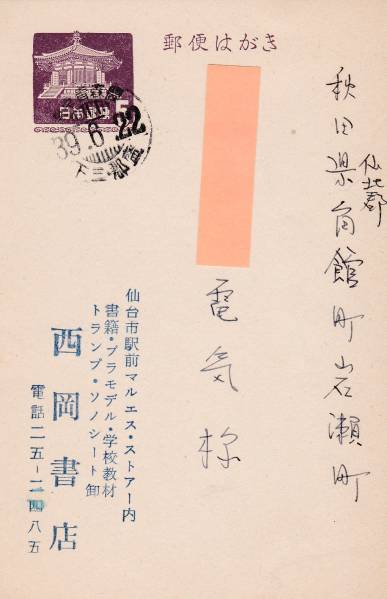 郵便はがき
日本郵便
5
39.6.22
秋田県仙北郡角館町岩瀬町
電気様
仙台市駅前マルエス・ストアー内
書籍・プラモデル・学校教材
トランプ・ソノシート卸
西岡書店
電話二五-二四八五